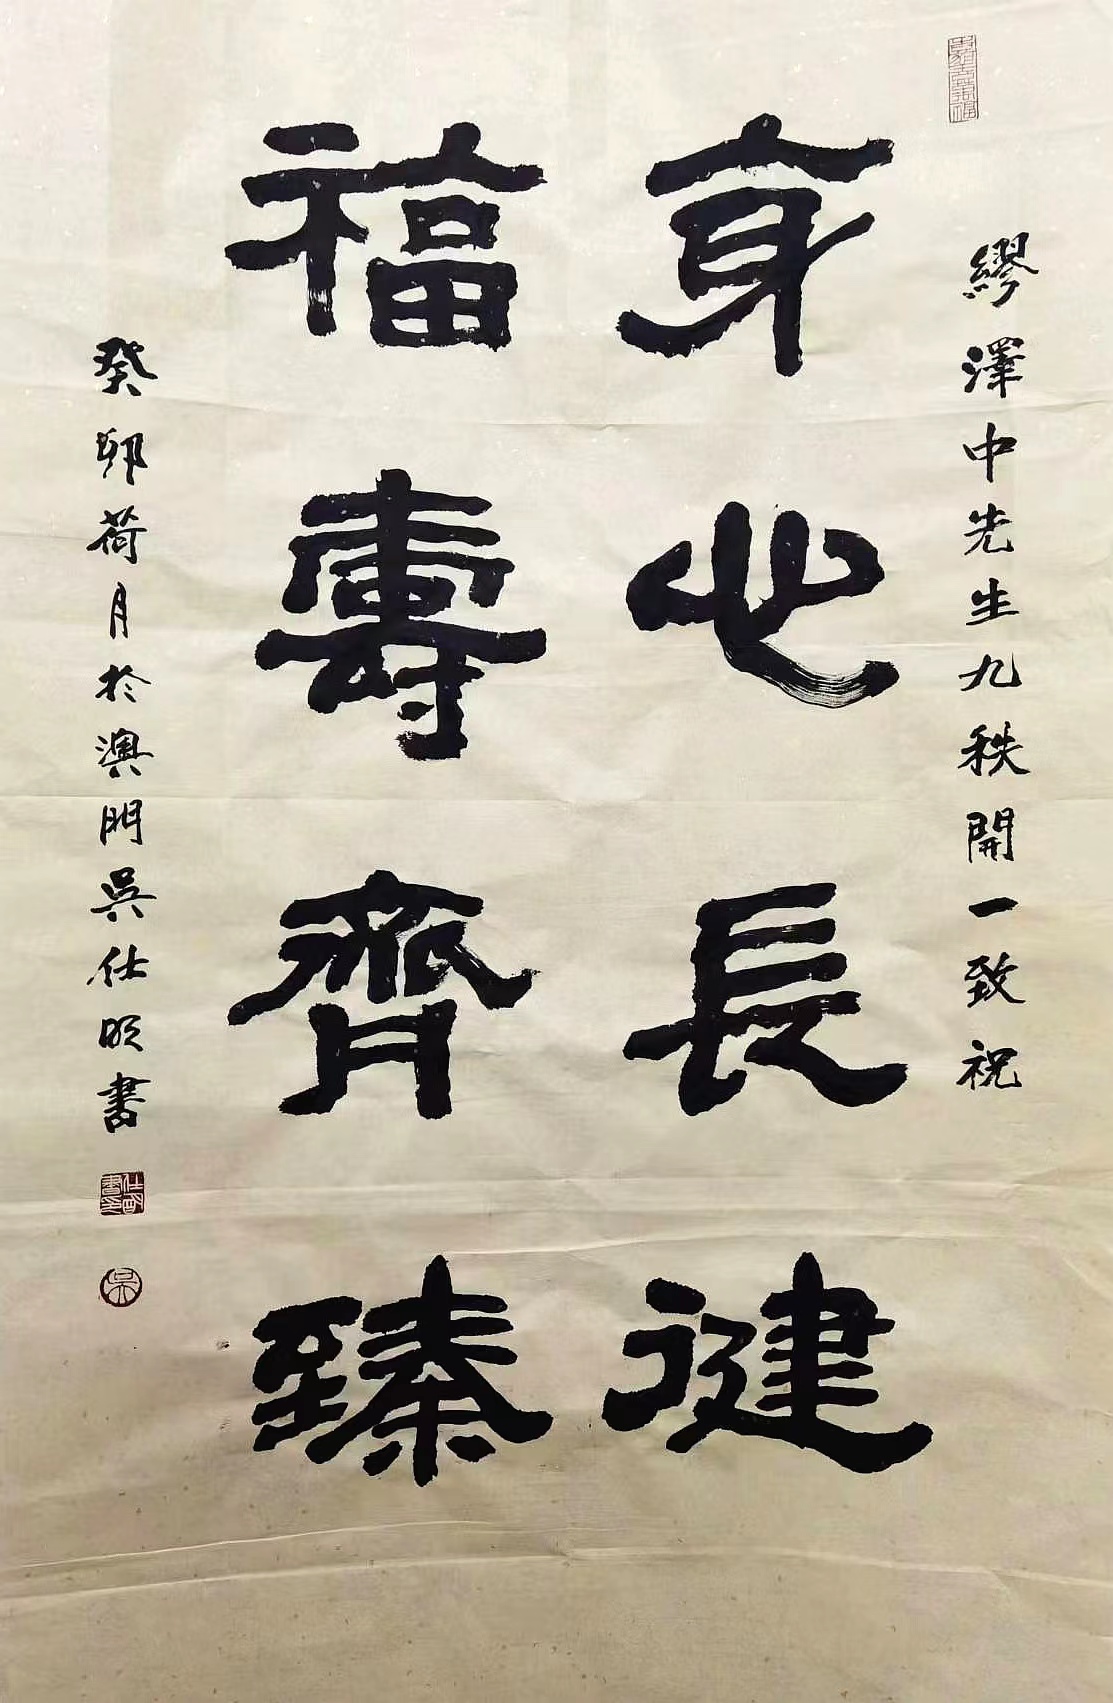 繆澤中先生九秩開一致祝
身心長健
福壽齊臻
癸卯荷月於澳門吳仕明書
仕明書印
吳